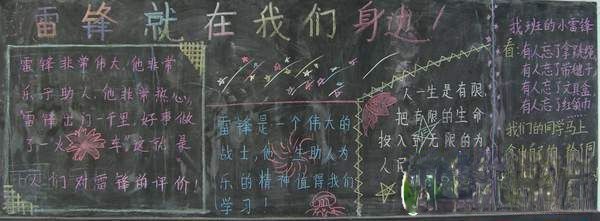 雷锋就在我们身边！
雷锋非常伟大，他非常
乐于助人，他非常热心，
雷锋出门一千里，好事做
了一火车，这就是
人们对雷锋的评价！
雷锋是一个伟大的
战士，他一生助人为
乐的精神值得我们
学习！
人一生是有限，
把有限的生命
投入到无限的为
人民
找班的小雷锋
看：有人忘了拿跳绳
有人忘了带毽子
有人忘了文具盒
有人忘了红领巾
我们的同学马上